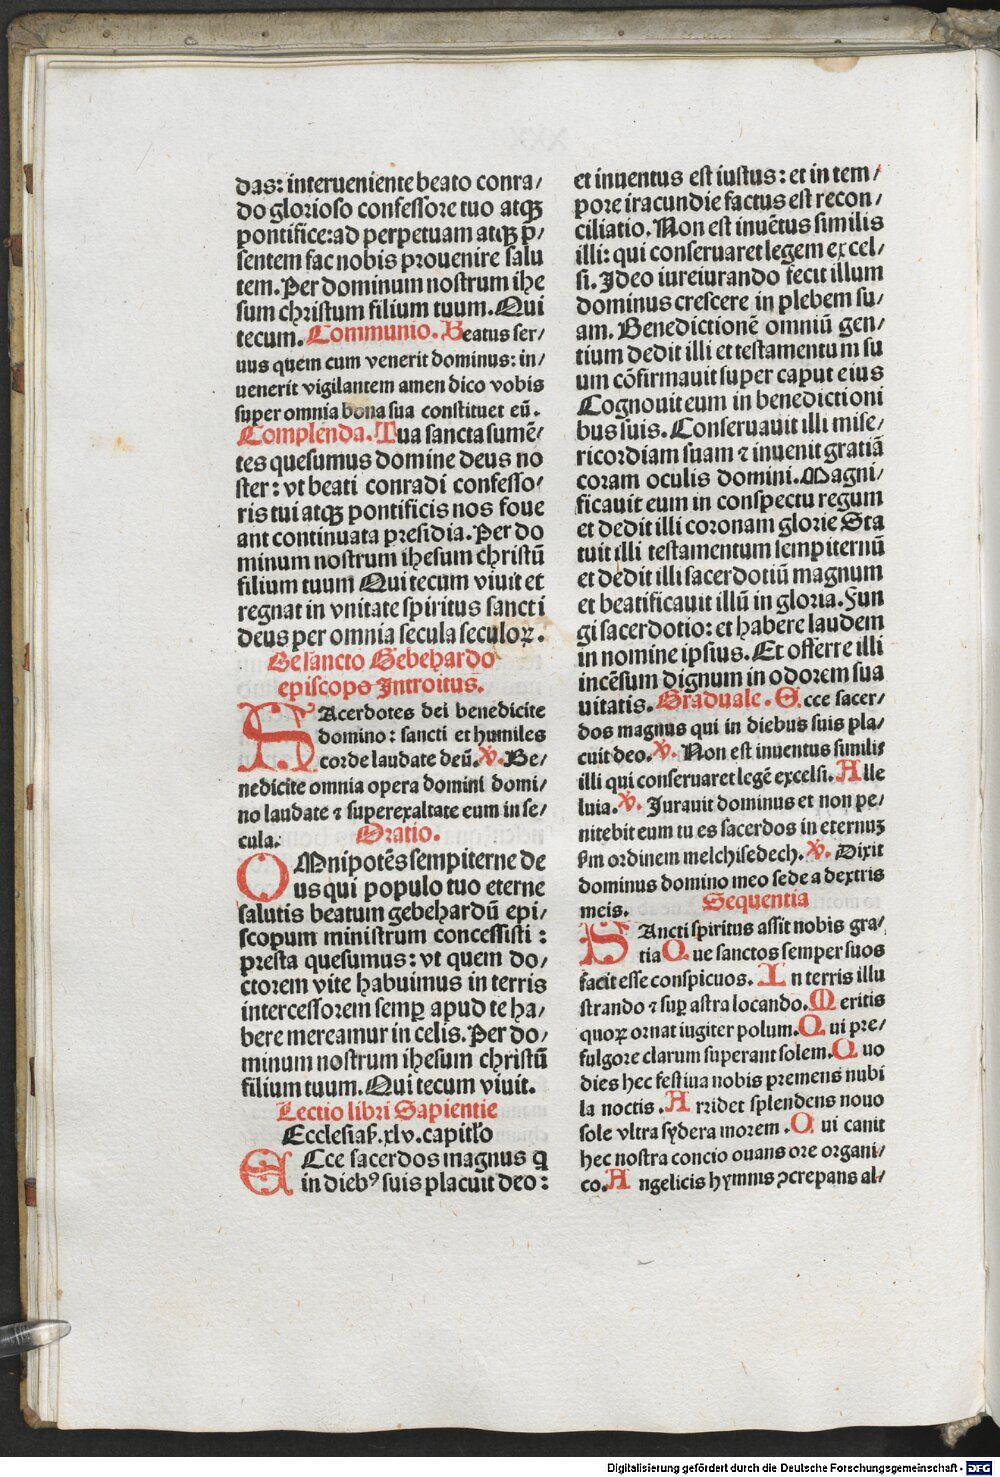 das: interueniente beato conra/
do glorioso confessore tuo atqꝫ
pontifice: ad perpetuam atqꝫ p̄/
sentem fac nobis prouenire salu
tem. Per dominum nostrum ihe
sum christum filium tuum. Qui
tecum. Communio. Beatus ser/
uus quem cum venerit dominus: in/
uenerit vigilantem amen dico vobis
super omnia bona sua constituet eū.
Complenda. Tua sancta sumē/
tes quesumus domine deus no
ster: vt beati conradi confesso/
ris tui atqꝫ pontificis nos foue
ant continuata presidia. Per do
minum nostrum ihesum christū
filium tuum Qui tecum viuit et
regnat in vnitate spiritus sancti
deus per omnia secula seculoꝝ.
De sancto Gebehardo
episcopo Introitus.
SAcerdotes dei benedicite
domino: sancti et humiles
corde laudate deū. ℣. Be/
nedicite omnia opera domini domi/
no laudate ⁊ superexaltate eum in se/
cula. Oratio.
OMnipotēs sempiterne de
us qui populo tuo eterne
salutis beatum gebehardū epi/
scopum ministrum concessisti:
presta quesumus: vt quem do/
ctorem vite habuimus in terris
intercessorem semꝑ apud te ha/
bere mereamur in celis. Per do/
minum nostrum ihesum christū
filium tuum. Qui tecum viuit.
Lectio libri Sapientie
Ecclesiaſ. xlv. capitło
ECce sacerdos magnus q
in dieb⁹ suis placuit deo:
et inuentus est iustus: et in tem/
pore iracundie factus est recon/
ciliatio. Non est inuētus similis
illi: qui conseruaret legem excel/
si. Ideo iureiurando fecit illum
dominus crescere in plebem su/
am. Benedictionē omniū gen/
tium dedit illi et testamentum su
um cōfirmauit super caput eius
Cognouit eum in benedictioni
bus suis. Conseruauit illi mise/
ricordiam suam ⁊ inuenit gratiā
coram oculis domini. Magni/
ficauit eum in conspectu regum
et dedit illi coronam glorie Sta
tuit illi testamentum sempiternū
et dedit illi sacerdotiū magnum
et beatificauit illū in gloria. Fun
gi sacerdotio: et habere laudem
in nomine ipsius. Et offerre illi
incēsum dignum in odorem sua
uitatis. Graduale. Ecce sacer/
dos magnus qui in diebus suis pla/
cuit deo. ℣. Non est inuentus similis
illi qui conseruaret legē excelsi. Alle
luia. ℣. Iurauit dominus et non pe/
nitebit eum tu es sacerdos in eternuꝫ
ẜm ordinem melchisedech. ℣. Dixit
dominus domino meo sede a dextris
meis. Sequentia
SAncti spiritus assit nobis gra/
tia Que sanctos semper suos
facit esse conspicuos. In terris illu
strando ⁊ suꝑ astra locando. Meritis
quoꝝ ornat iugiter polum. Qui pre/
fulgore clarum superant solem. Quo
dies hec festiua nobis premens nubi
la noctis. Arridet splendens nouo
sole vltra sydera morem. Qui canit
hec nostra concio ouans ore organi/
co. Angelicis hymnis ꝯcrepans al/
Digitalisierung gefördert durch die Deutsche Forschungsgemeinschaft - DFG